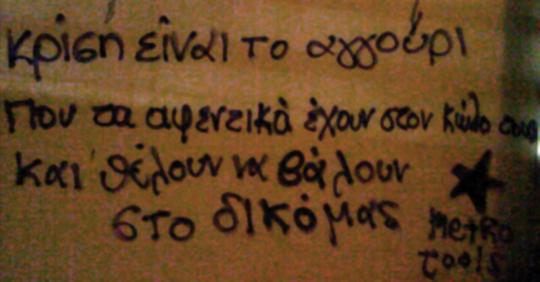 κρίση είναι το αγγούρι
που τα αφεντικά έχουν στον κώλο τους
και θέλουν να βάλουν
στο δικό μας
Metro
tools